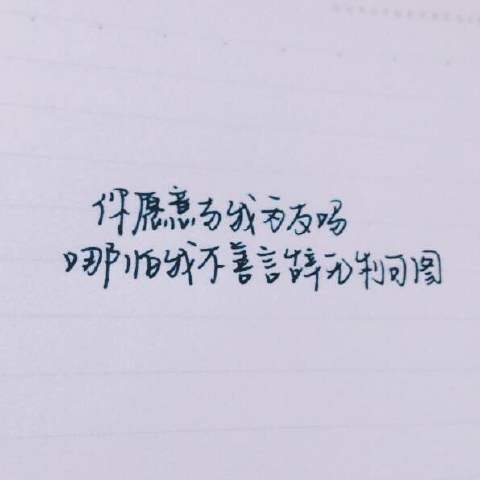 你愿意与我为友吗
哪怕我不善言辞无利可图